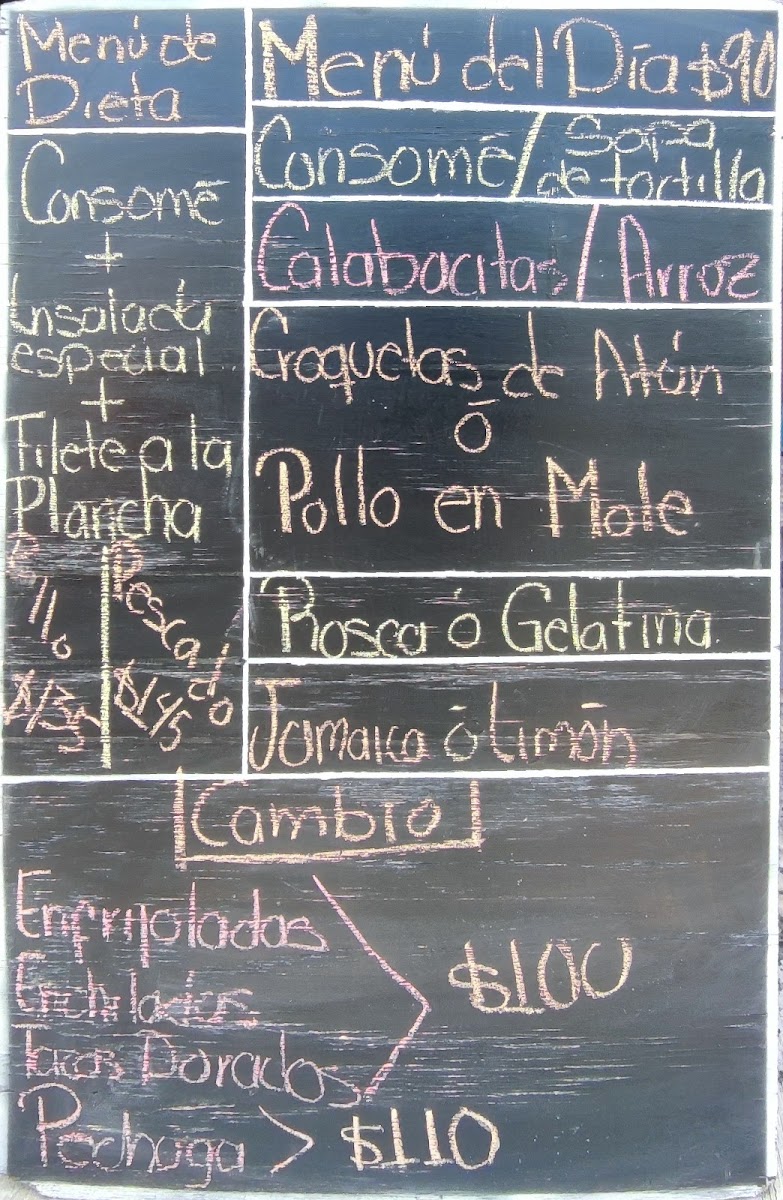 Menú de
Dieta
Consomé
+
Ensalada
especial
+
Filete a la
Plancha
Pollo
$135
Pescado
$145
Menú del Día $90
Consomé / Sopa
de tortilla
Calabacitas / Arroz
Croquetas de Atún
ó
Pollo en Mole
Rosca ó Gelatina
Jamaica ó Limón
Cambio
Enfrijoladas
Enchiladas
Tacos Dorados
$100
Pechuga > $110